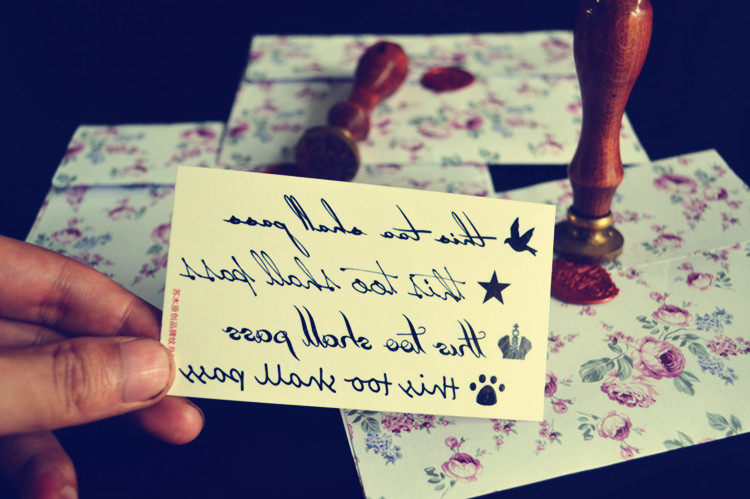 this too shall pass
this too shall pass
this too shall pass
this too shall pass
苏木原创品牌纹身